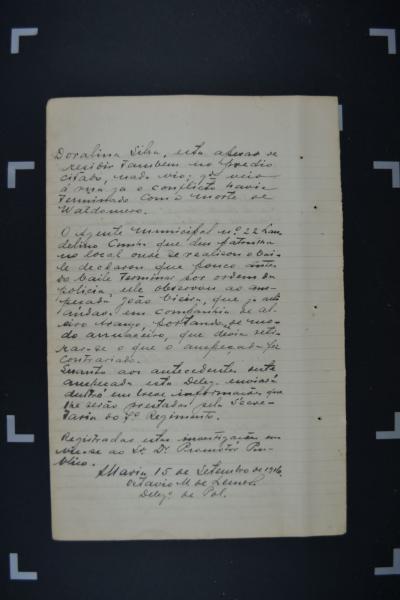 Doralina Silva, esta apezar de
residir tambem no predio
citado, nada viu; que veio
á rua já o conflicto havia
terminado com a morte de
Waldomiro.
O Agente Municipal nº 22
delino que deu patrulha
no local onde se realisou o bai-
le declarou que pouco antes
do baile terminar por ordem da
policia, elle observou ao
peçada João Vieira, que
andava em companhia de
portando-se de mo-
do que devia reti-
rar-se o que o anspeçada fez
contrariado.
Quanto aos antecedentes deste
anspeçada esta Deleg. enviará
dentro em breve informações que
lhe serão prestadas pela Secre-
taria do 7º Regimento.
Registradas estas investigações en-
vie-se ao Sr. Dr. Promotor Pu-
blico.
Maria 15 de Setembro de 1916.
Octavio M. de Lemos
Delegº de Pol.